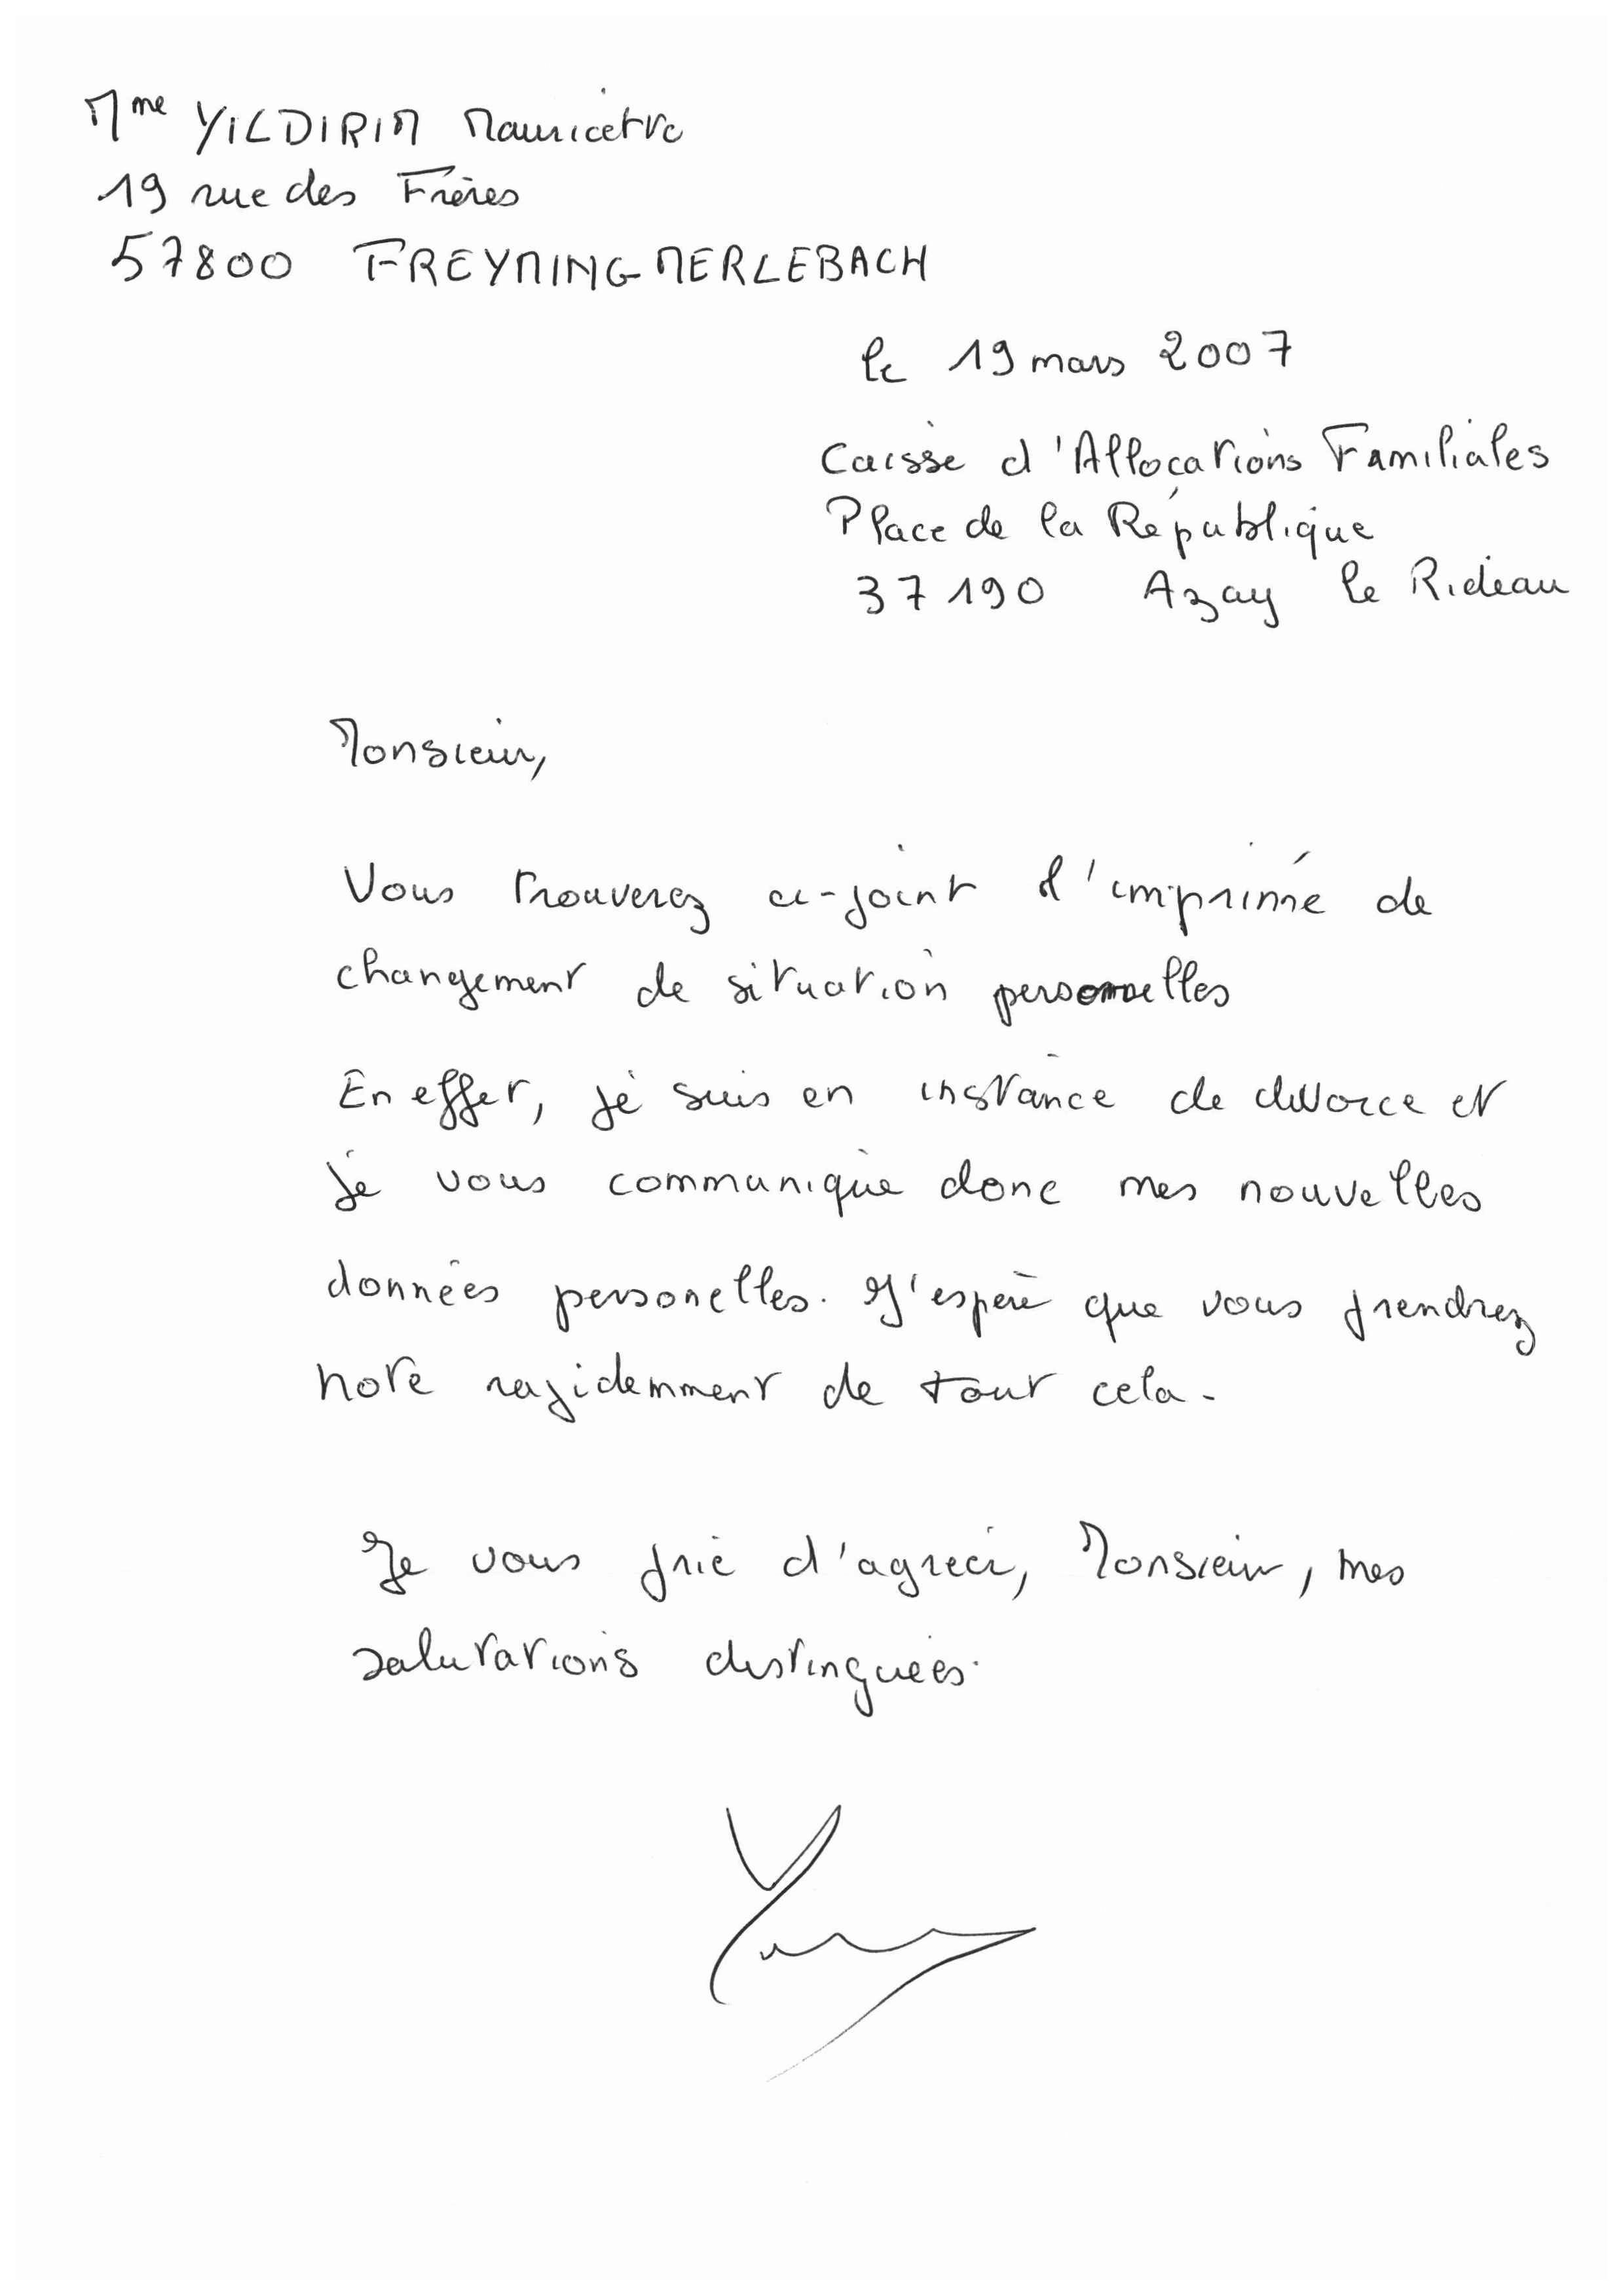 Mme YILDIRIM Mauricette
19 rue des Frères
57800 FREYMING-MERLEBACH
le 19 mars 2007
Caisse d'Allocations Familiales
Place de la République
37190 Azay le Rideau
Monsieur,
Vous trouverez ci-joint l'imprimé de
changement de situation personnelles
En effet, je suis en instance de divorce et
je vous communique donc mes nouvelles
données personelles. J'espère que vous prendrez
note rapidemment de tout cela.
Je vous prie d'agréer, Monsieur, mes
salutations distinguées.